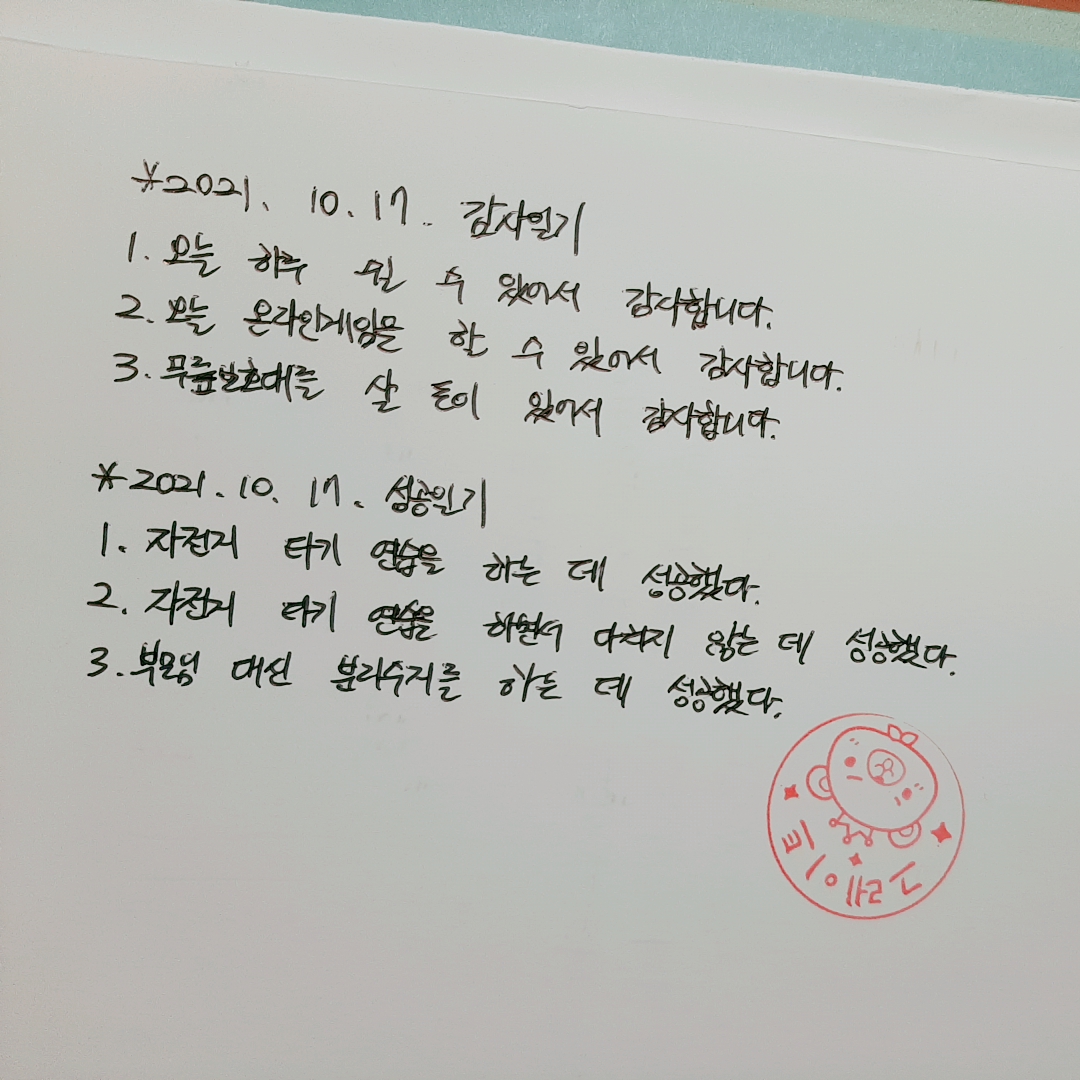 *2021. 10. 17. 감사일기
1. 오늘 하루 쉴 수 있어서 감사합니다.
2. 오늘 온라인게임을 할 수 있어서 감사합니다.
3. 무릎보호대를 살 돈이 있어서 감사합니다.
*2021. 10. 17. 성공일기
1. 자전거 타기 연습을 하는 데 성공했다.
2. 자전거 타기 연습을 하면서 다치지 않는 데 성공했다.
3. 부모님 대신 분리수거를 하는 데 성공했다.